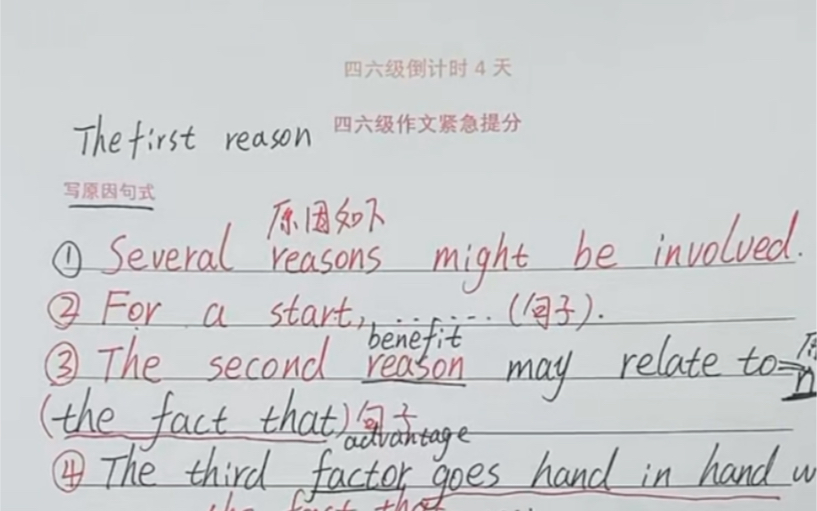 四六级倒计时 4 天
四六级作文紧急提分
The first reason
写原因句式
原因如下
① Several reasons might be involved.
② For a start, ....... (句子).
benefit
③ The second reason may relate to
n
(the fact that) 句子
advantage
④ The third factor goes hand in hand
the fact that